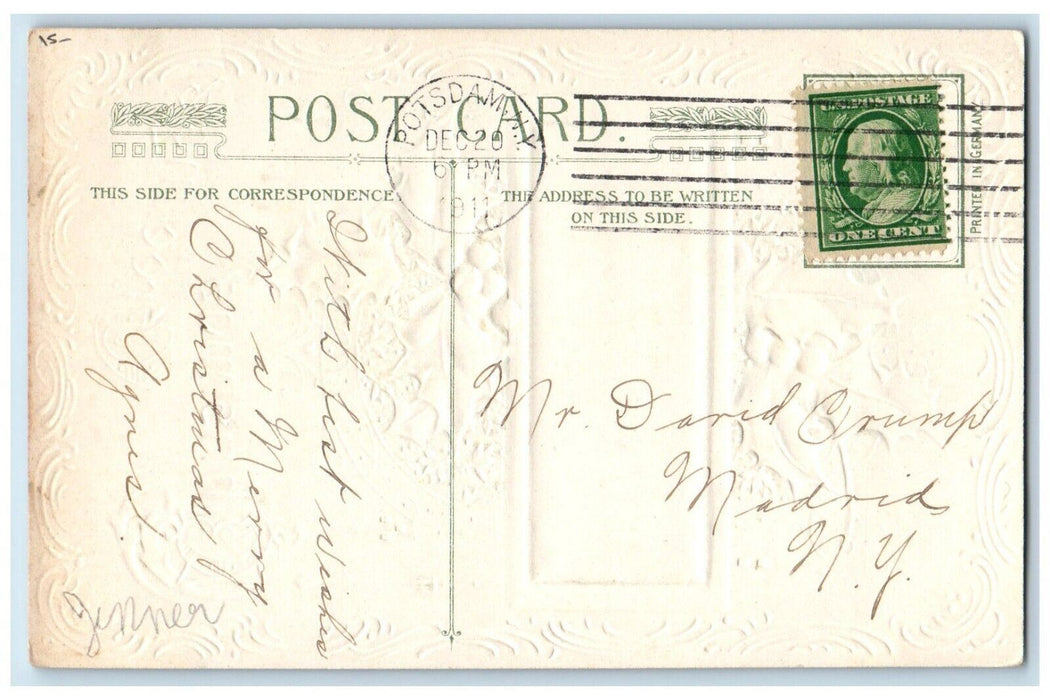 15-
POST CARD.
POTSDAM, N.Y.
DEC 20
6 PM
1911
U.S. POSTAGE
ONE CENT
PRINTED IN GERMANY
THIS SIDE FOR CORRESPONDENCE.
THE ADDRESS TO BE WRITTEN
ON THIS SIDE.
With best wishes
for a Merry
Christmas
Agnes
Mr. David Crump
Madrid
N.Y.